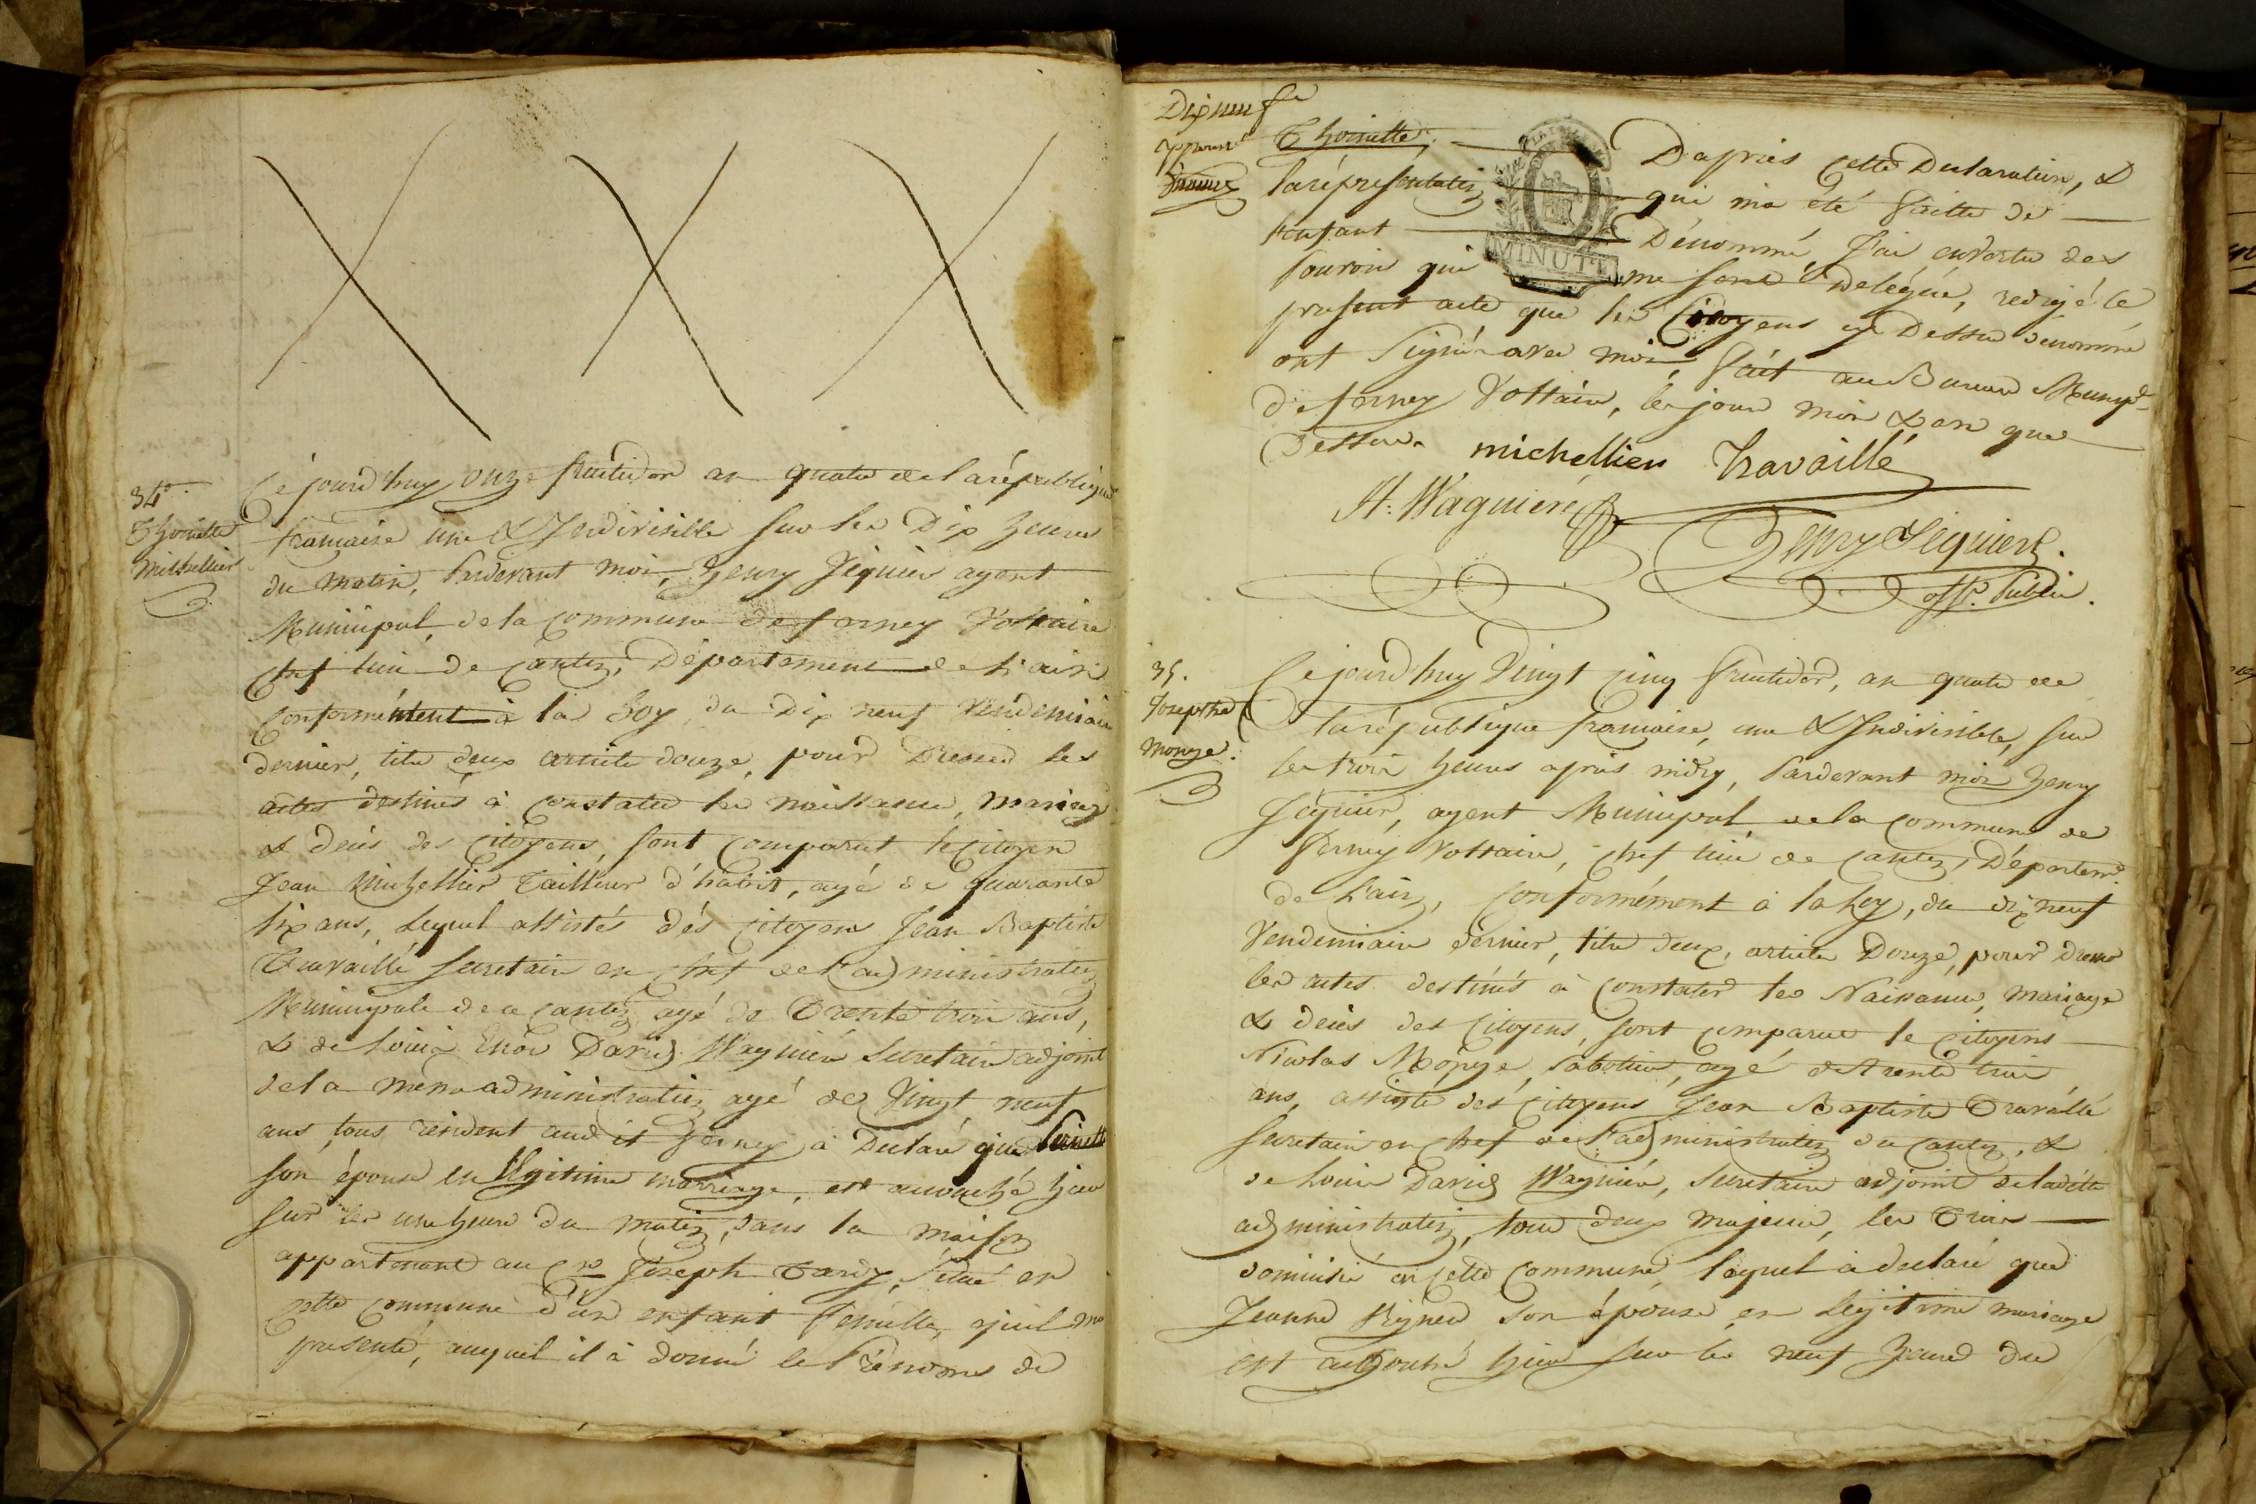 34e.
Thoinette
michellier
Cejourdhuy onze fructidor an quatre de la république
francaise une & Indivisible sur les Dix heures
du matin, Pardevant moi, henry Jéquier agent
Municipal, de la commune de ferney Voltaire
chef lieu de canton, Département de L'ain
conformément à la Loy du Dix neuf Vendemiaire
dernier, titre deux article douze, pour Dresser les
actes destinés à constater les naissances, mariages
& decés des citoyens, sont comparut le citoyen
Jean Michellier Tailleur d'habit, agé de quarante
six ans, Lequel assistés dés citoyens Jean Baptiste
Travaillé secretaire en chef de l'administration
Municipale de ce canton agé de Trente trois ans,
& de Louis David Wagnière secretaire adjoint
de la meme administration agé de Vingt neuf
ans, tous résident audit ferney à Declaré que
son épouse en légitime marriage, est accouché hier
sur les une heure du matin, dans la maison
appartenant au Cen Joseph Tardy, située en
cette commune d'un enfant femelle, qu'il me
presenté, auquel il à donné le Prénoms de
Dix neuf
Thoinette. D'aprés cette Declaration, &
la répresentation qui ma été faitte de
l'enfant Dénommé, J'ai en vertu des
Pouvoir qui me sont delégué, redigé le
present acte que les Citoyens cy Dessus dénommé
ont signés avec moi, fait au Bureau Municipal
de ferney Voltaire, les jour mois & an que
Dessus.
michellier Travaillé
H. Wagniere
Henry Jéquier.
offr. Public.
35.
Josepthe
Monge.
Cejourdhuy Vingt cinq fructidor, an quatre de
la république francaise, une & Indivisible, sur
les trois heures aprés midy, Pardevant moi henry
Jéquier, agent Municipal, de la commune de
Ferney Voltaire, chef lieu de canton, Départemt
de L'ain, conformément à la Loy, du dix neuf
Vendemiaire dernier, titre deux, article Douze, pour dresser
les actes destinés à constater les Naissances, mariage
& decés des citoyens, sont comparut le citoyens
Nicolas Monge, sabotier, agé de trente trois
ans, assisté dés citoyens Jean Baptiste Travaillé
secretaire en chef de l'administration du canton, &
de Louis David Wagnière, secretaire adjoint de la ditte
administration, tous deux majeurs, les Trois
domicilié en cette commune, Laquel à declaré que
Jeanne son épouse en légitime mariage
est accouché hier sur les neuf heures du
MINUTE